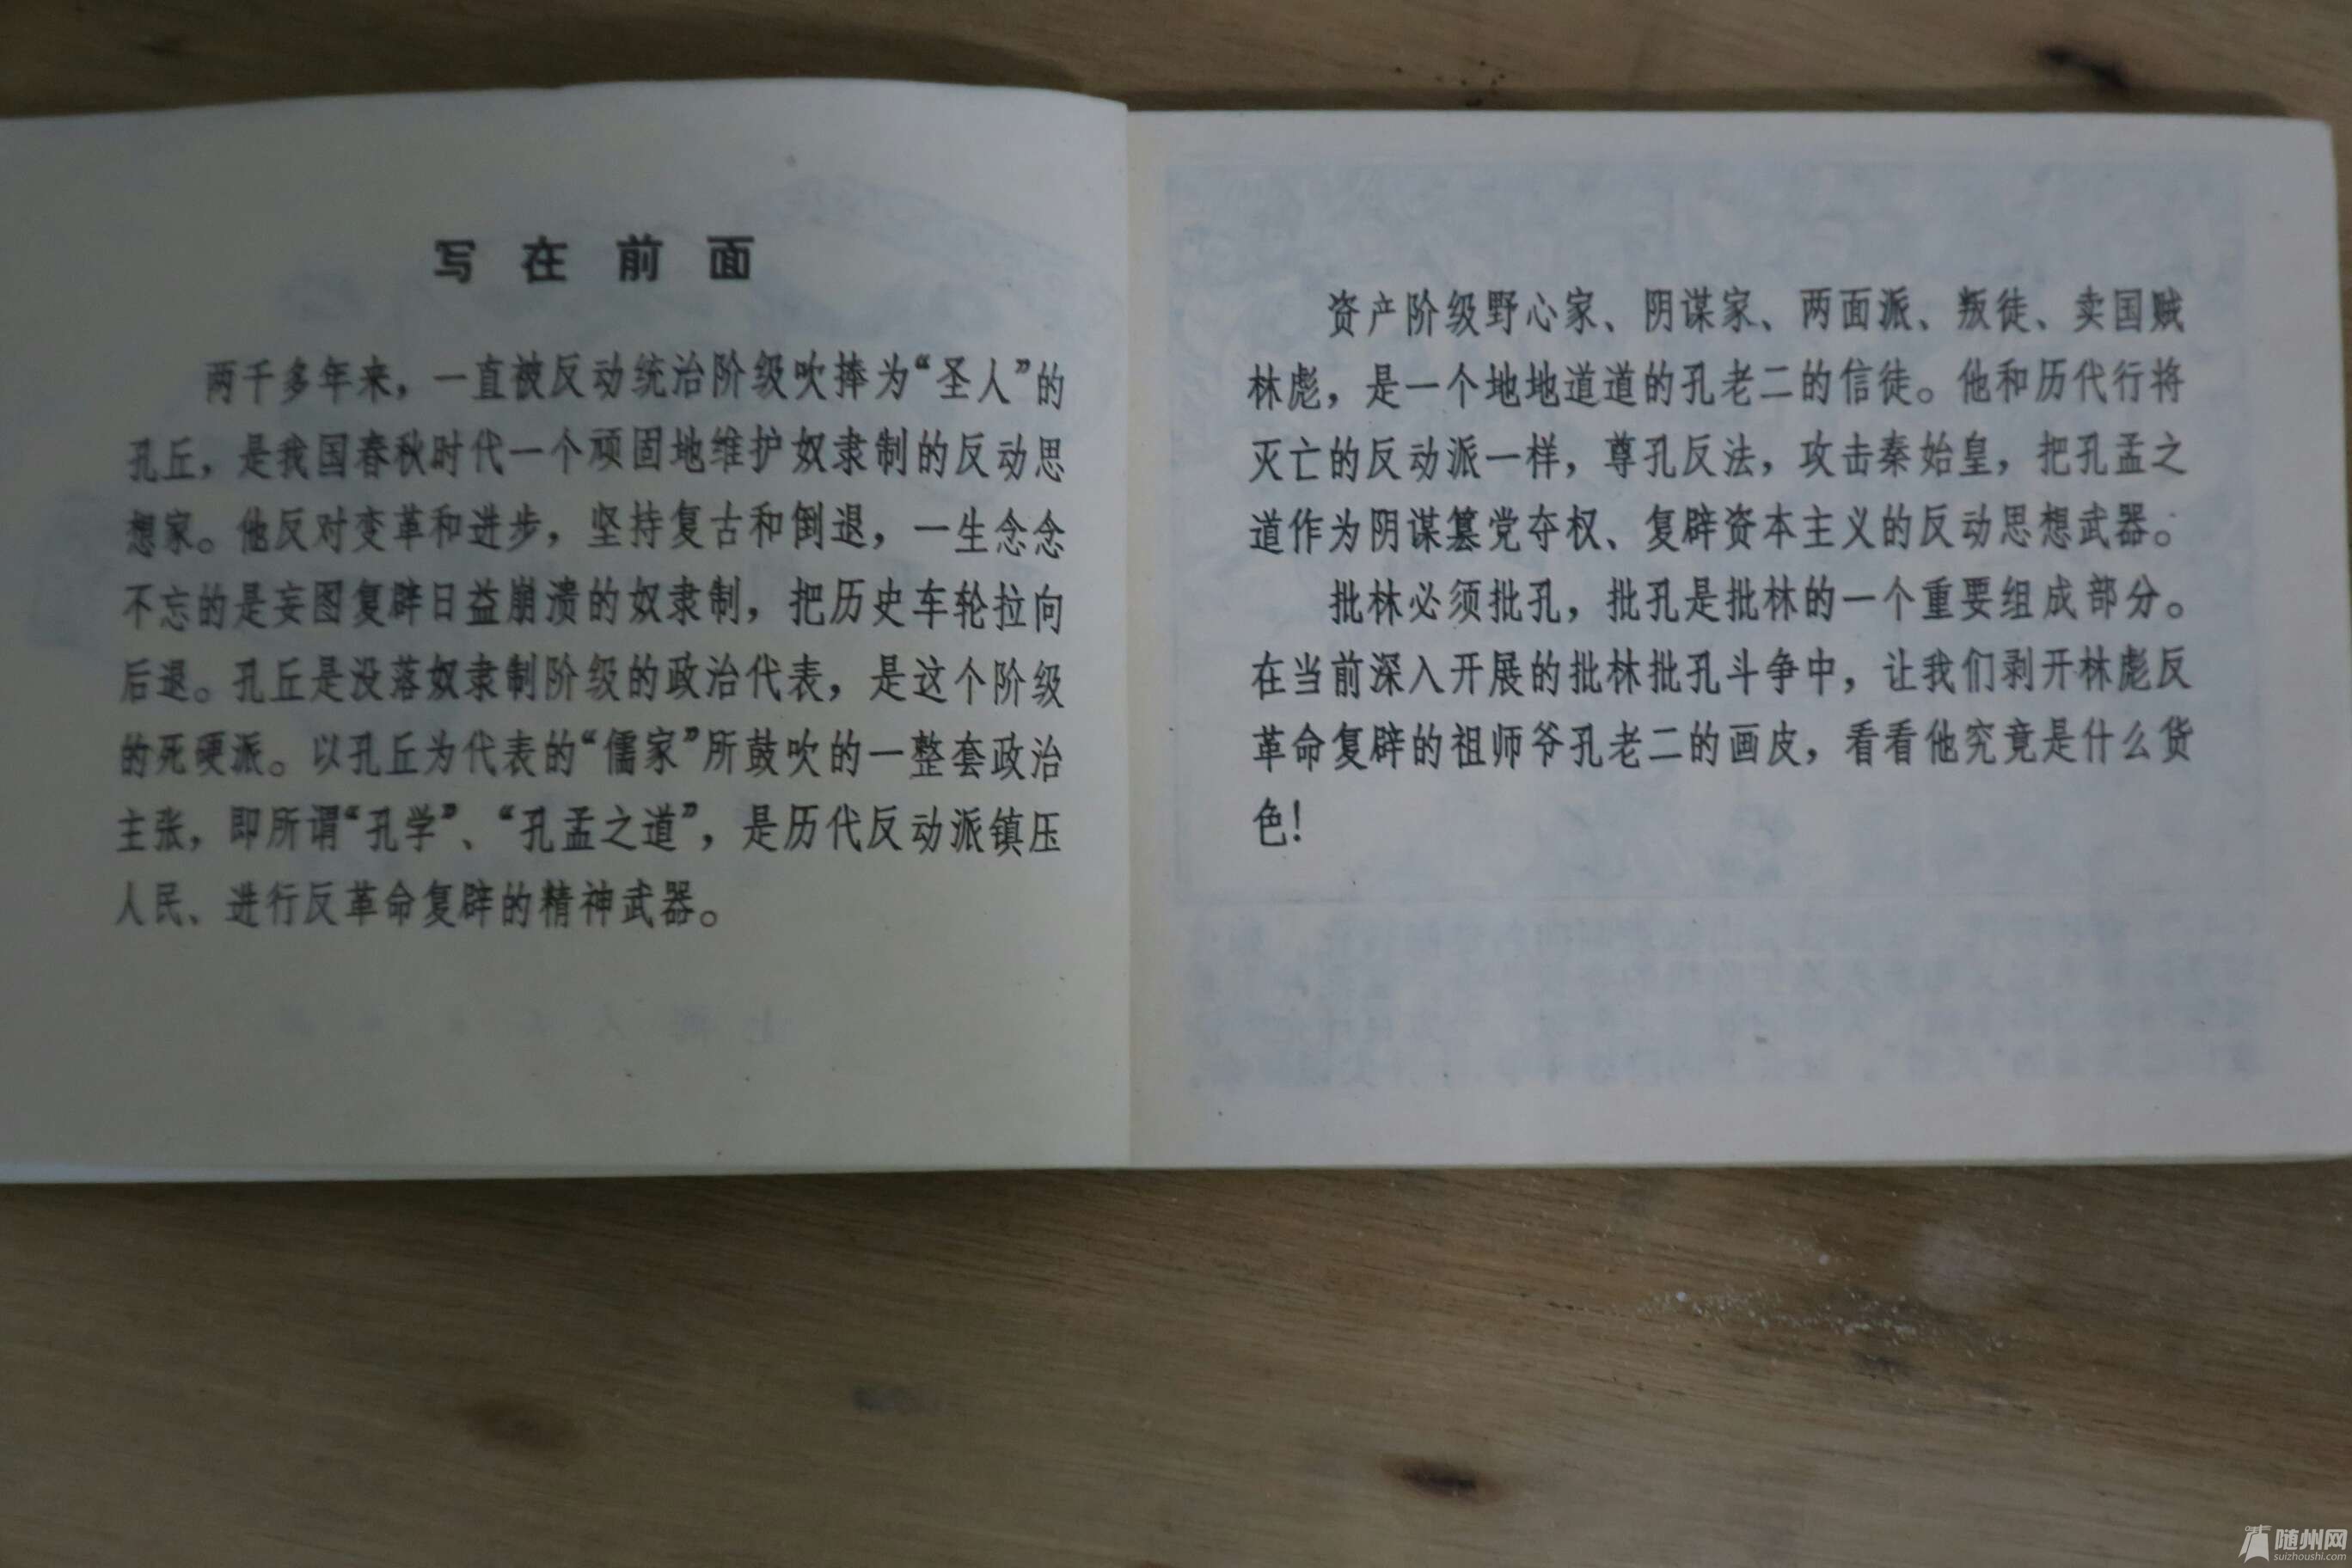 写在前面
两千多年来，一直被反动统治阶级吹捧为“圣人”的
孔丘，是我国春秋时代一个顽固地维护奴隶制的反动思
想家。他反对变革和进步，坚持复古和倒退，一生念念
不忘的是妄图复辟日益崩溃的奴隶制，把历史车轮拉向
后退。孔丘是没落奴隶制阶级的政治代表，是这个阶级
的死硬派。以孔丘为代表的“儒家”所鼓吹的一整套政治
主张，即所谓“孔学”、“孔孟之道”，是历代反动派镇压
人民、进行反革命复辟的精神武器。
资产阶级野心家、阴谋家、两面派、叛徒、卖国贼
林彪，是一个地地道道的孔老二的信徒。他和历代行将
灭亡的反动派一样，尊孔反法，攻击秦始皇，把孔孟之
道作为阴谋篡党夺权、复辟资本主义的反动思想武器。
批林必须批孔，批孔是批林的一个重要组成部分。
在当前深入开展的批林批孔斗争中，让我们剥开林彪反
革命复辟的祖师爷孔老二的画皮，看看他究竟是什么货
色！
随州网
suizhoushi.com